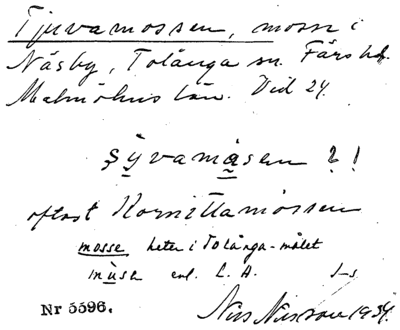 Tjuvamossen, mosse i
Näsby, Tolånga sn. Färs hd.
Malmöhus län. Vid 24.
şy̤vamåsen ?!
oftast Kornittamossen
mosse heter i Tolånga-målet
mùsa enl. L. A.
Nr 5596. Nils Nilsson 1934.